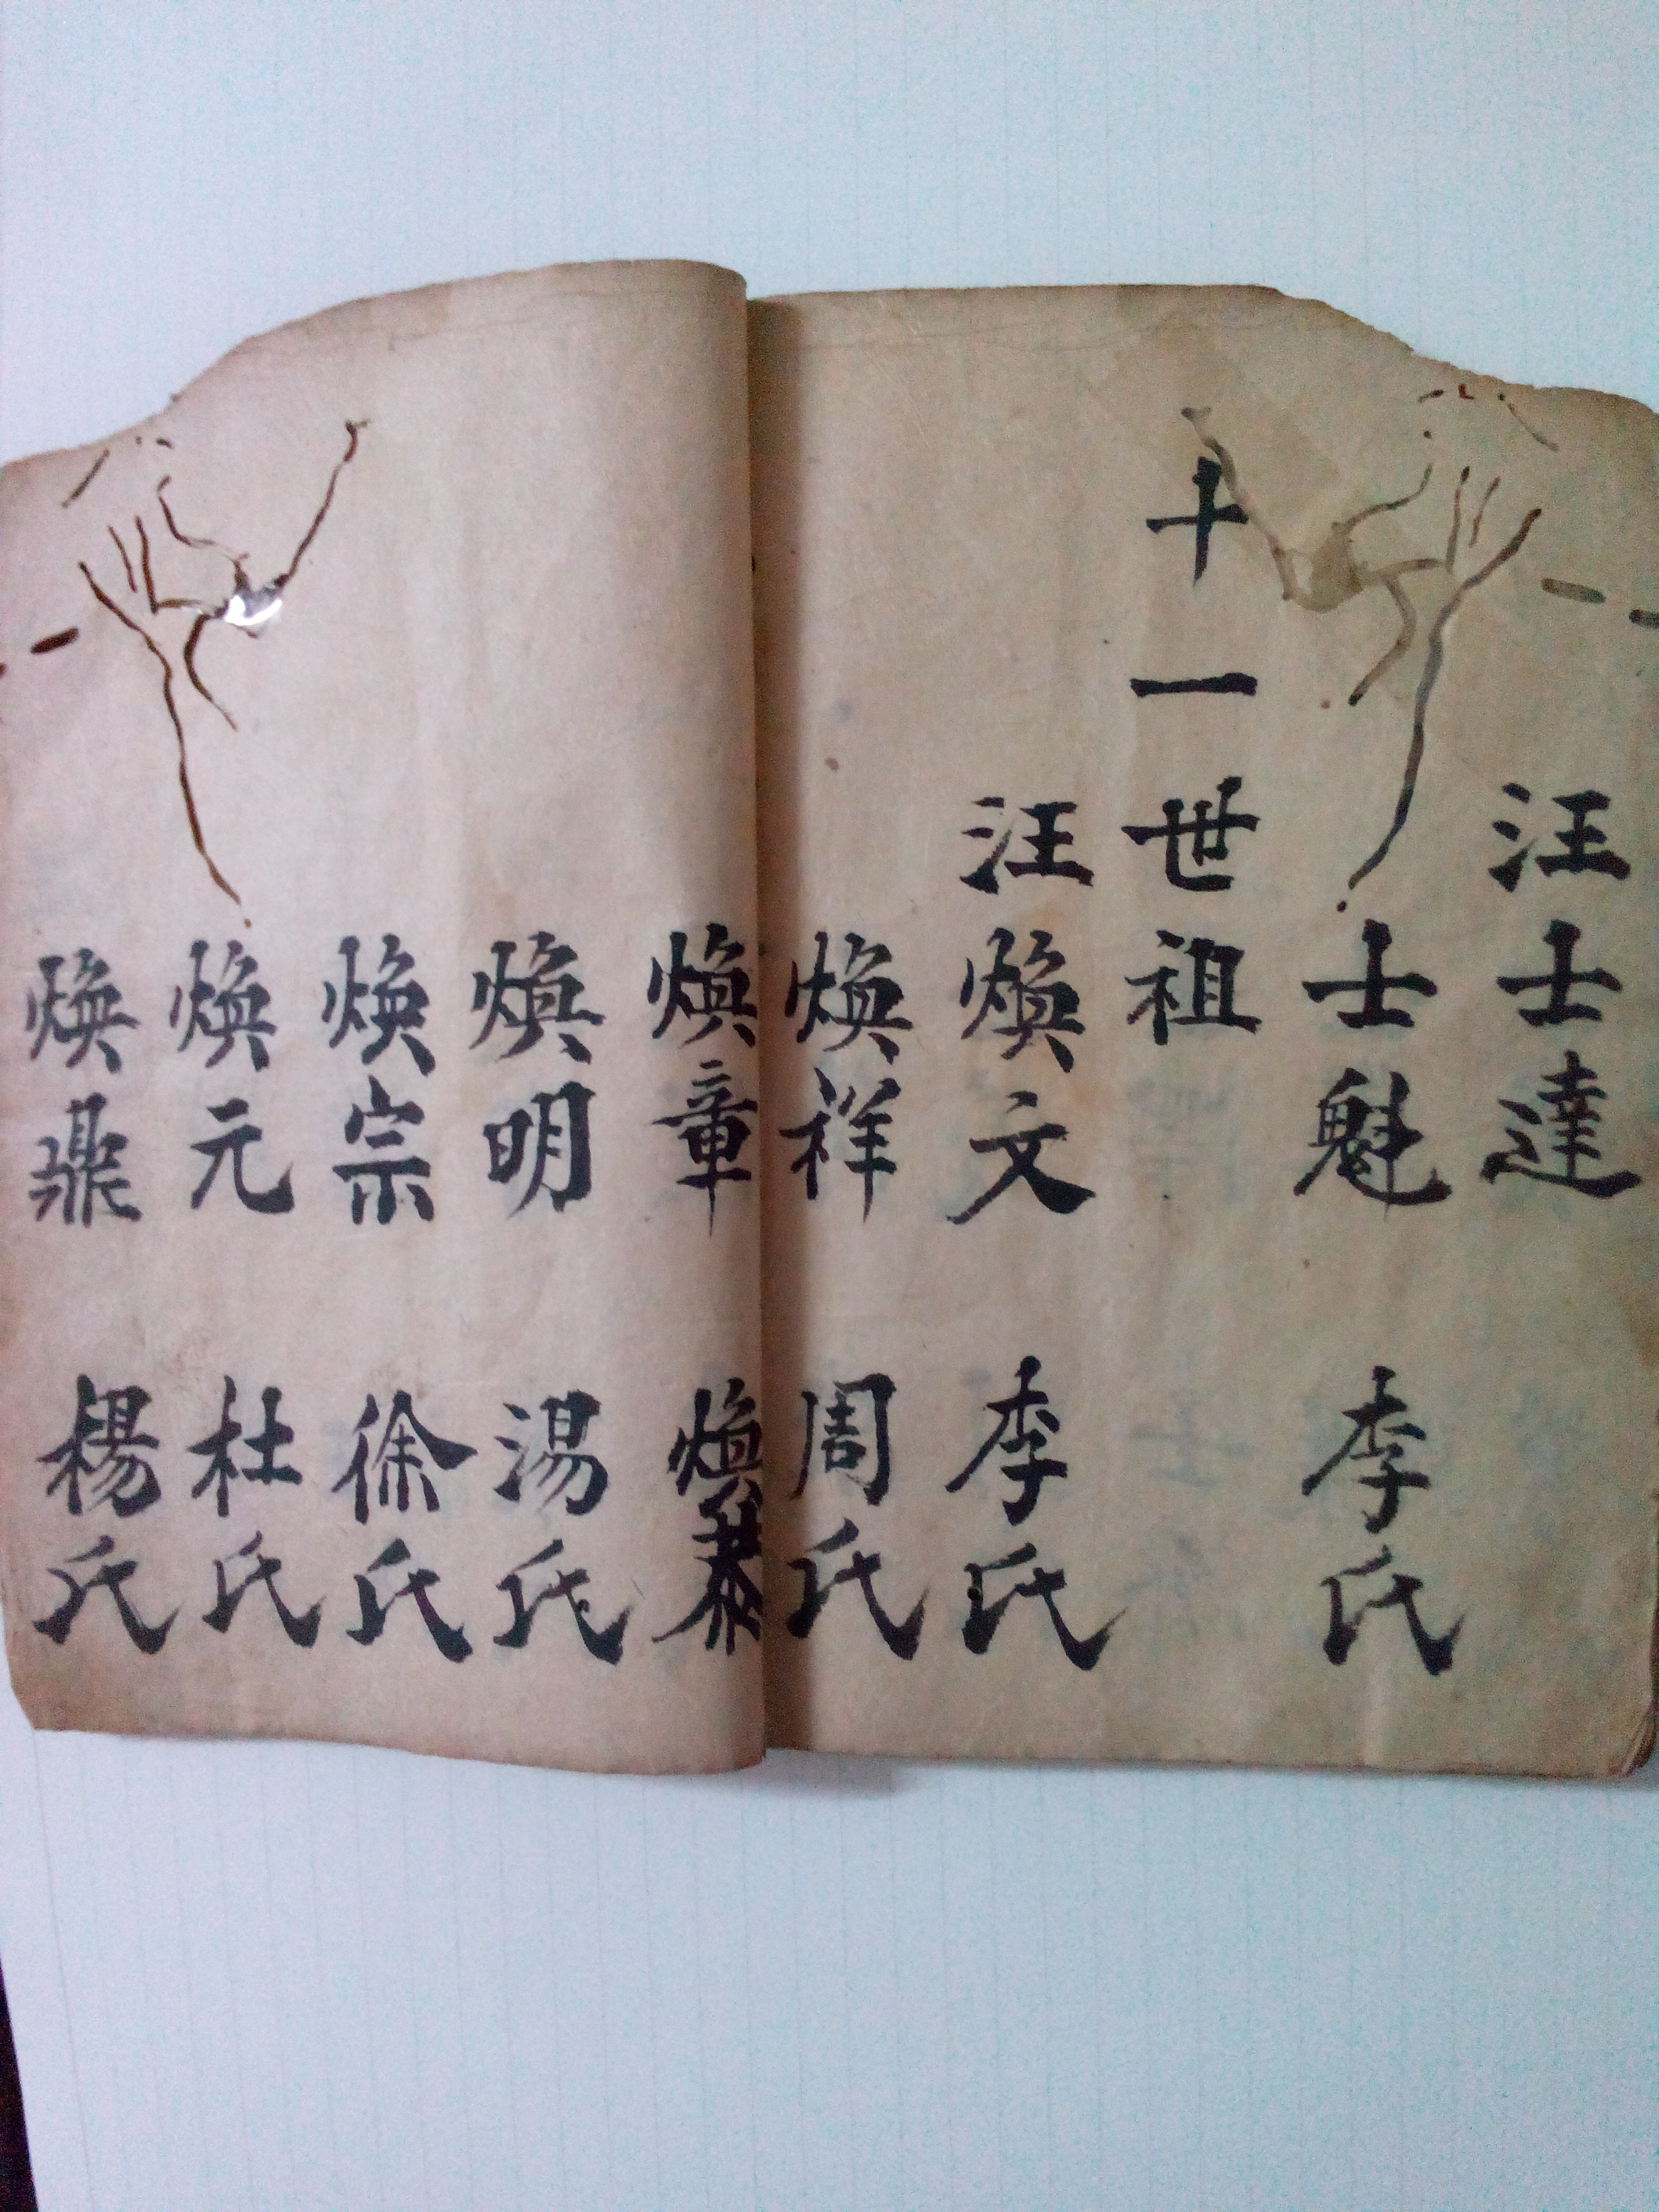 汪士達
士魁 李氏
十一世祖
汪煥文 李氏
煥祥 周氏
煥章 煥
煥明 湯氏
煥宗 徐氏
煥元 杜氏
煥鼎 楊氏